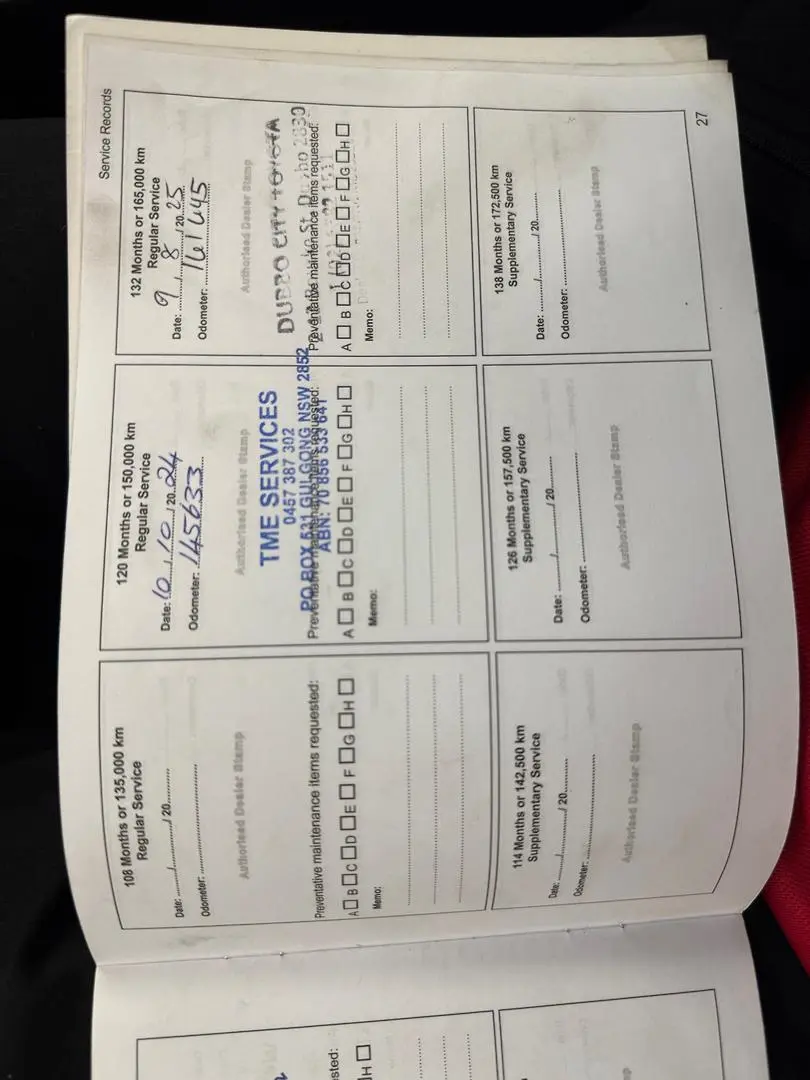 Service Records
108 Months or 135,000 km
Regular Service
Date: ......./......./ 20.........
Odometer: ................................
Authorised Dealer Stamp
Preventative maintenance items requested:
A □ B □ C □ D □ E □ F □ G □ H □
Memo:
120 Months or 150,000 km
Regular Service
Date: 10 / 10 / 20 24
Odometer: 145633
Authorised Dealer Stamp
TME SERVICES
0457 387 302
PO BOX 531 GULGONG NSW 2852
ABN: 70 856 533 641
Preventative maintenance items requested:
A □ B □ C □ D □ E □ F □ G □ H □
Memo:
132 Months or 165,000 km
Regular Service
Date: 9 / 8 / 20 25
Odometer: 161645
Authorised Dealer Stamp
DUBBO CITY TOYOTA
St Dubbo 2830
Preventative maintenance items requested:
A □ B □ C □ D □ E □ F □ G □ H □
Memo:
114 Months or 142,500 km
Supplementary Service
Date: ......./......./ 20.........
Odometer: ................................
Authorised Dealer Stamp
126 Months or 157,500 km
Supplementary Service
Date: ......./......./ 20.........
Odometer: ................................
Authorised Dealer Stamp
138 Months or 172,500 km
Supplementary Service
Date: ......./......./ 20.........
Odometer: ................................
Authorised Dealer Stamp
27
sted:
H □